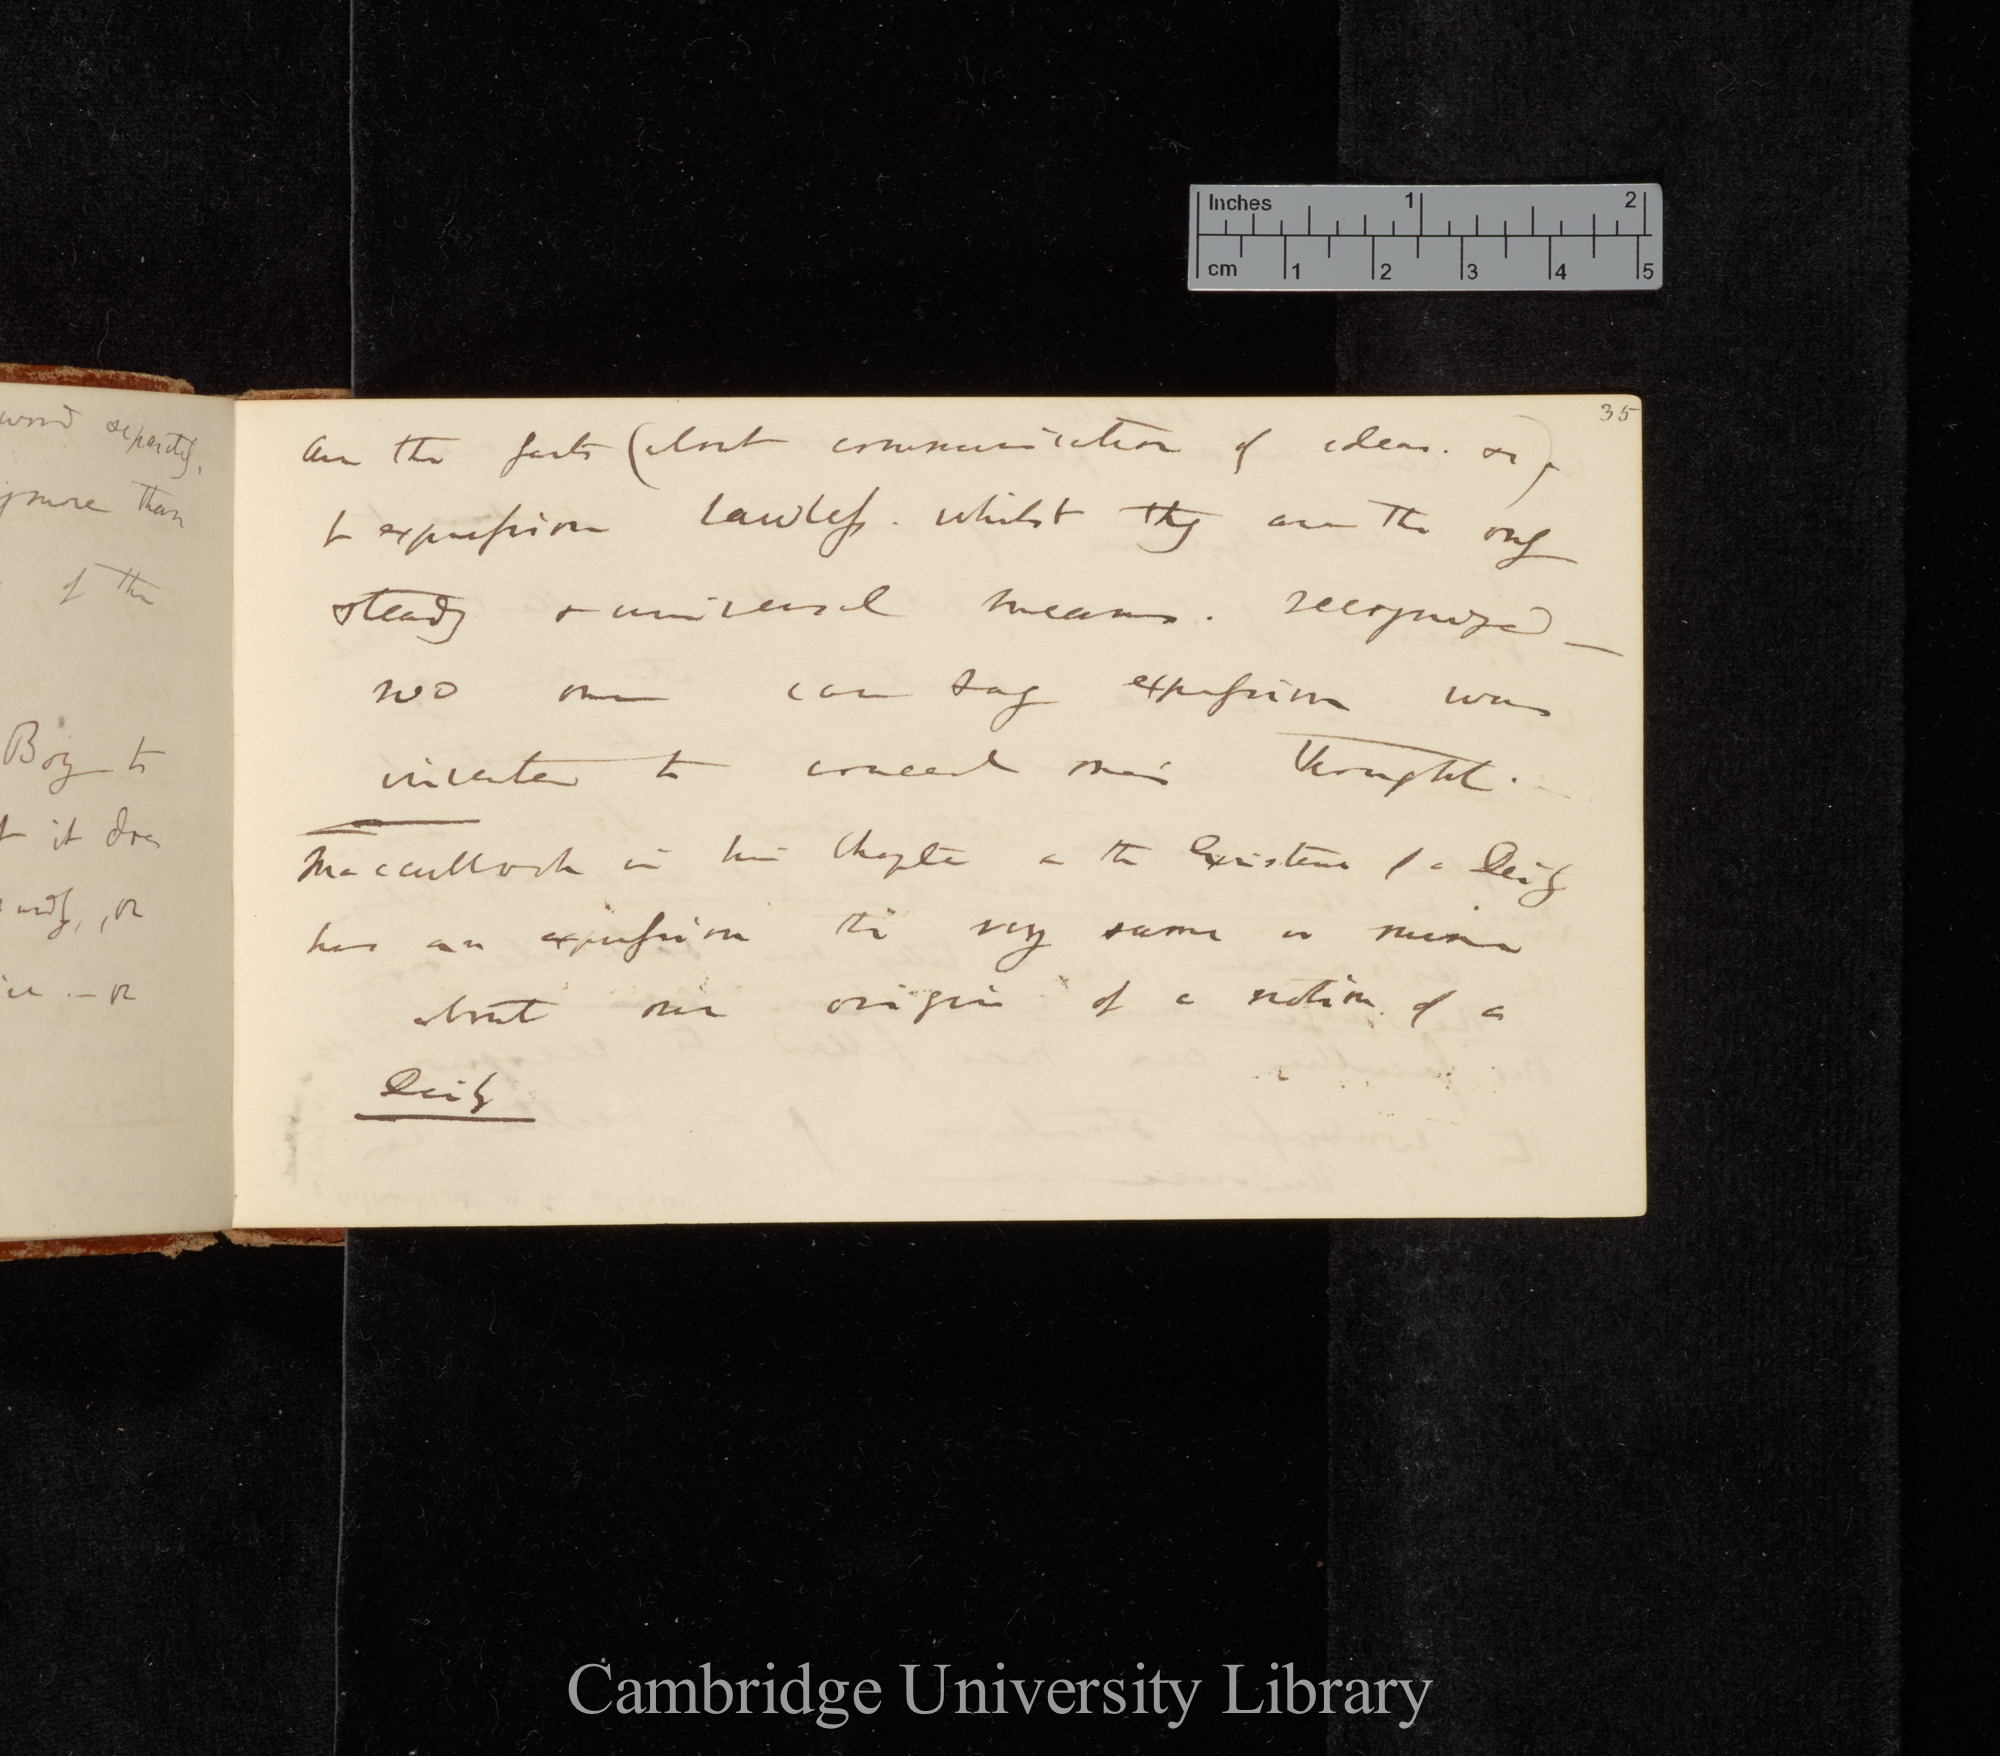 word separately.
more than
of the
Boy to
it does
, or
. — or
35
are the facts (about communication of ideas. &c)
to expression lawless. whilst they are the only
steady & universal means. recognized —
no one can say expression was
invented to conceal one's thought. —
Macculloch in his Chapter on the Existence of a Deity
has an expression the very same as mine
about our origin of a notion of a
Deity
Inches 1 2
cm 1 2 3 4 5
Cambridge University Library